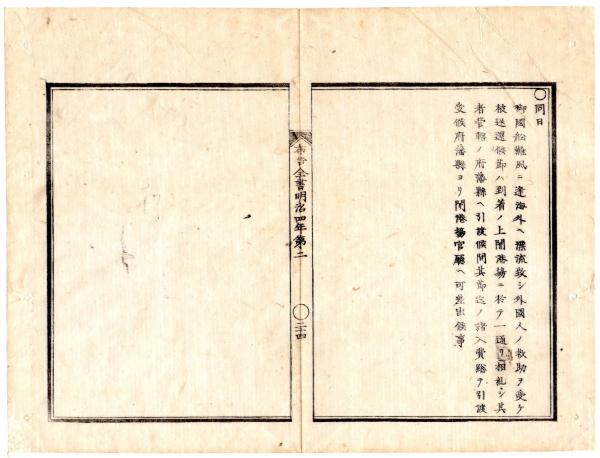 〇同日
御國船難風ニ逢海外ヘ漂流致シ外國人ノ救助ヲ受ケ
被送還候節ハ到着ノ上開港場ニ於テ一通リ相糺シ其
者管轄ノ府藩縣ヘ引渡候間其節迄ノ諸入費総テ引渡
受候府藩縣ヨリ開港場官廳ヘ可差出候事
布告全書明治四年第二
〇二十四